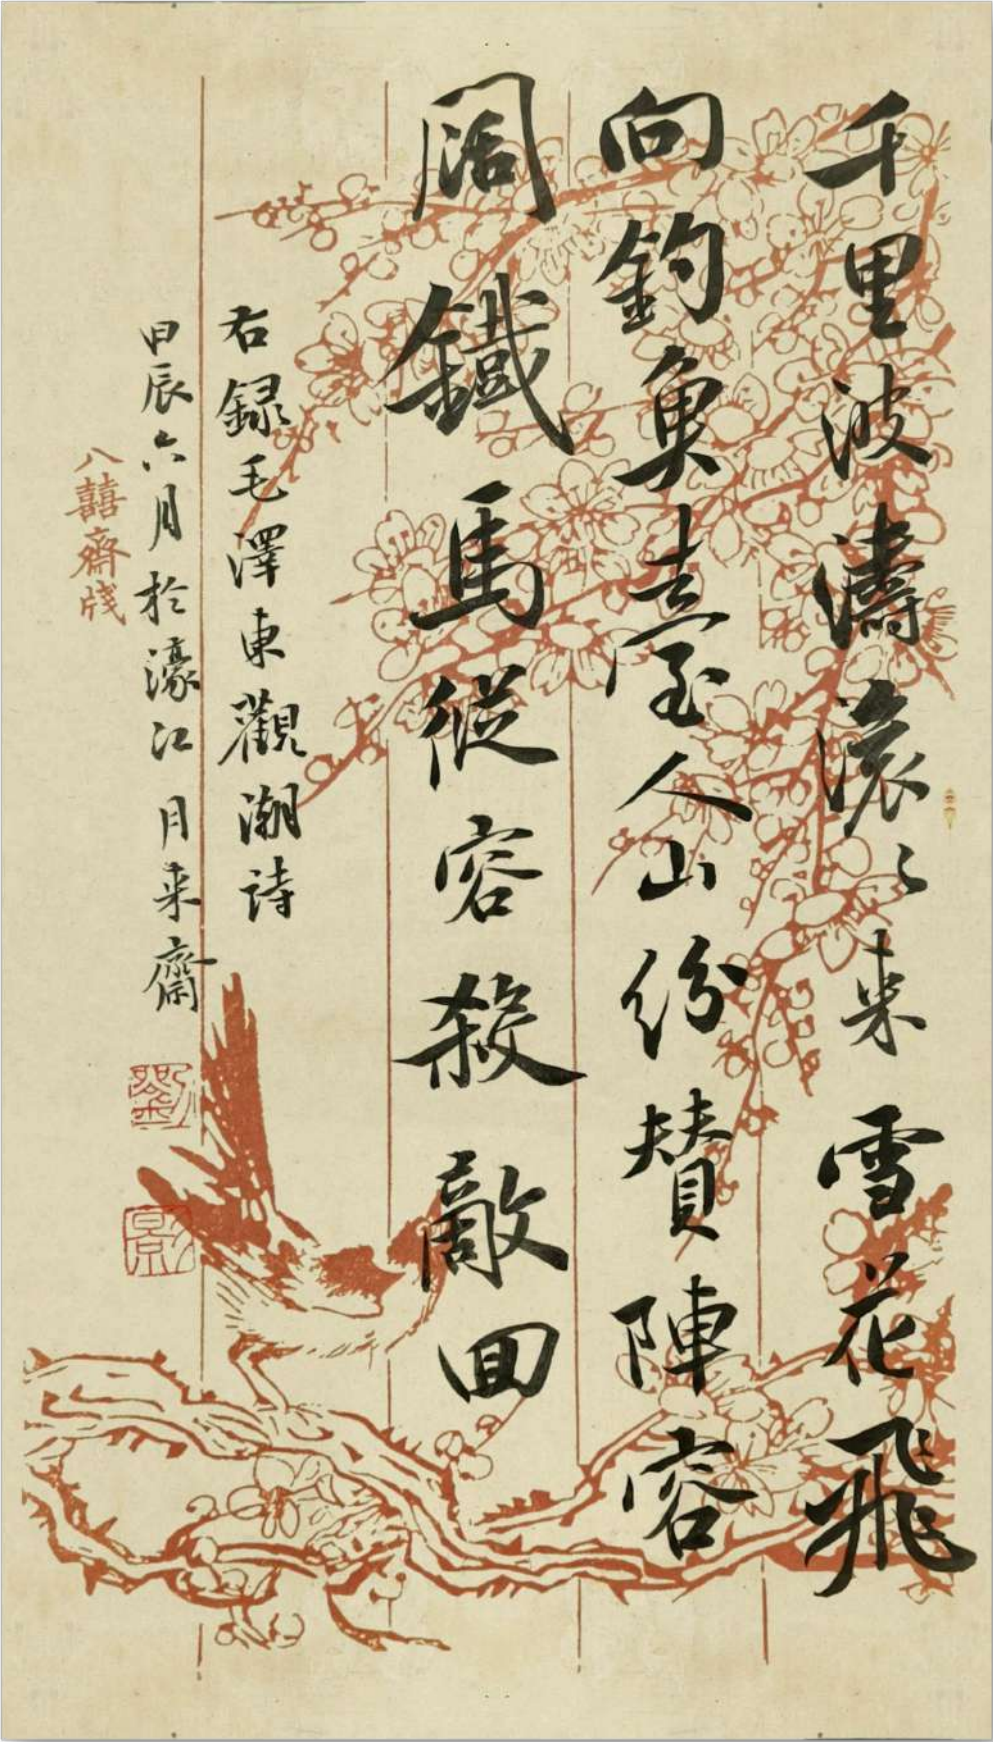 千里波濤滾〻來雪花飛
向釣魚臺人山紛贊陣容
闊鐵馬從容殺敵回
右録毛澤東觀潮詩
甲辰六月於濠江月来齋
劉
影
八囍齋牋